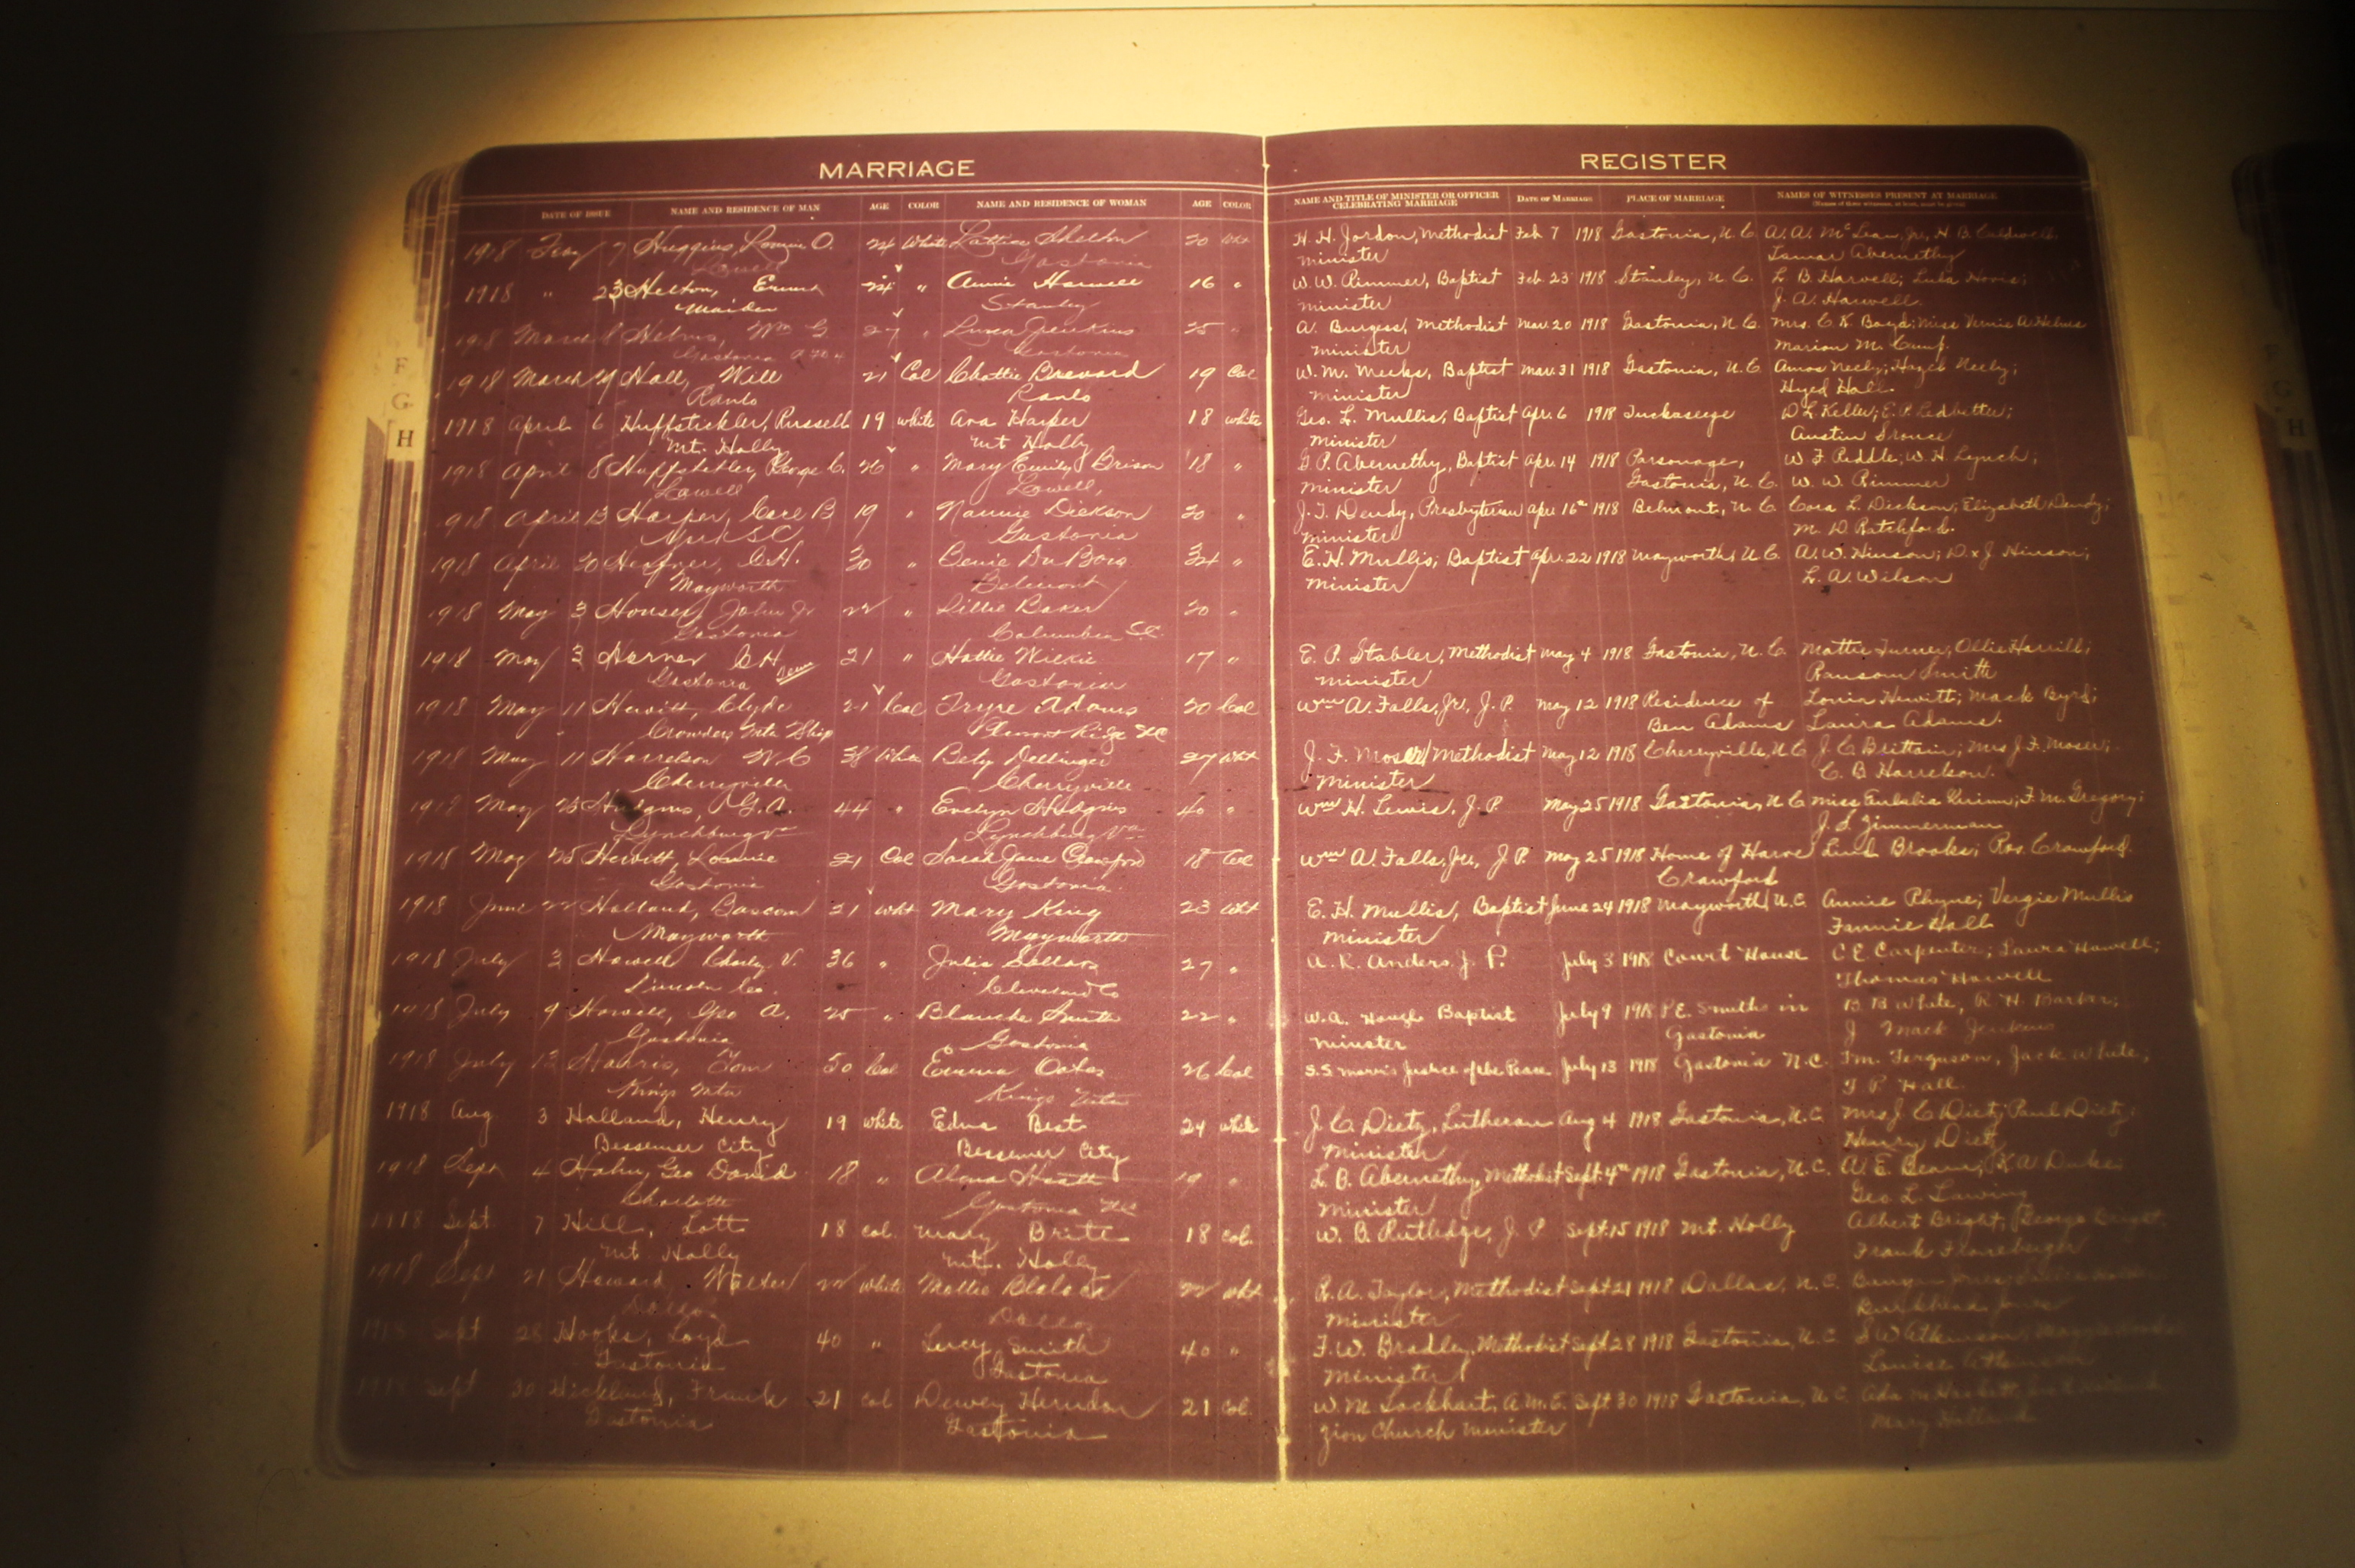 MARRIAGE
REGISTER
DATE OF ISSUE NAME AND RESIDENCE OF MAN AGE COLOR NAME AND RESIDENCE OF WOMAN AGE COLOR
NAME AND TITLE OF MINISTER OR OFFICER CELEBRATING MARRIAGE DATE OF MARRIAGE PLACE OF MARRIAGE NAMES OF WITNESSES PRESENT AT MARRIAGE
F
G
H
1918 7 Huggins, O. 24 White Shelton 20 H. H. Jordon, Methodist Feb 7 1918 Gastonia, N.C. A. A. McLean Jr, H. B. Caldwell,
Lowell Gastonia minister Lamar Abernethy
1918 " 23 Helton, 24 " Annie Harwell 16 " W. W. Rimmer, Baptist Feb. 23 1918 Stanley, N.C. L. B. Harwell; Lula Hovis;
Maiden Stanley minister J. A. Harwell.
1918 March Helms, Wm G 27 " Jenkins 25 " A. Burgess, Methodist Mar. 20 1918 Gastonia, N.C. Mrs. C. K. Boyd; Miss A. Helms
Gastonia Gastonia minister Marion M.
1918 March 29 Hall, Will 21 Col Chattie Brevard 19 Col W. M. Meeks, Baptist Mar. 31 1918 Gastonia, N.C. Amos Neely; Neely;
Ranlo Ranlo minister Hall.
1918 April 6 Huffstickler, Russell 19 white Ava Harper 18 white Geo. L. Mullis, Baptist Apr. 6 1918 Tuckaseege D. L. Keller; E. P. Ledbetter;
Mt. Holly Mt Holly minister Austin
1918 April 8 C. 26 " Mary Emily Brison 18 " G. P. Abernethy, Baptist Apr. 14 1918 Parsonage, W. F. Peddle; W. H. Lynch;
Lowell Lowell, minister Gastonia, N.C. W. W. Rimmer
1918 April 13 Harper, B 19 " Nannie Dickson 20 " J. T. Dendy, Presbyterian Apr. 16th 1918 Belmont, N.C. Cora L. Dickson; Elizabeth Dendy;
York SC Gastonia minister M. D. Ratchford.
1918 April 20 Hefner, C.H. 30 " DuBois 32 " E. H. Mullis, Baptist Apr. 22 1918 Mayworth, N.C. A. W. Hinson; Hinson;
Mayworth Belmont minister L. A. Wilson
1918 May 3 Houser, John Jr 22 " Lillie Baker 20 "
Gastonia Columbia SC.
1918 May 3 C H 21 " Hattie Wilkie 17 " E. P. Stabler, Methodist May 4 1918 Gastonia, N.C. Mattie Turner, Ollie Harrill;
Gastonia Gastonia minister Ransom Smith
1918 May 11 Hewitt, Clyde 21 Col Adams 20 Col Wm A. Falls, Jr., J. P. May 12 1918 Residence of Hewitt; Mack Byrd;
Crowders Mtn Ship Ridge Ben Adams Laura Adams.
1918 May 11 Harrelson W. C White Dellinger 27 Wht J. F. Moser, Methodist May 12 1918 Cherryville, N.C J. C. Brittain; Mrs J. F. Moser;
Cherryville Cherryville minister C. B Harrelson.
1918 May 25 Hodgins, 44 " Evelyn Hodgins 40 " Wm H. Lewis, J. P May 25 1918 Gastonia, N.C Miss Eulalia F. M. Gregory;
Lynchburg Va Lynchburg Va J. L. Zimmerman
1918 May 25 Hewitt, Lonnie 21 Col Sarah Jane Crawford 18 Col Wm A. Falls, Jr., J. P. May 25 1918 Home of Brooks; Ros. Crawford.
Gastonia Gastonia. Crawford
1918 June 22 Holland, Bascom 21 Wht Mary King 23 Wht E. H. Mullis, Baptist June 24 1918 Mayworth N.C. Annie Rhyne; Vergie Mullis
Mayworth Mayworth minister Fannie Hall
1918 July 3 Howell V. 36 " Julia Sellars 27 " A. R. Anders. J. P. July 3 1918 Court House C E. Carpenter; Laura Howell;
Lincoln Co. Cleveland Co Thomas Howell
1918 July 9 Howell, Geo A. 25 " Blanche Smith 22 " W. A. Hough Baptist July 9 1918 P. E. Smiths in B B White, R. H. Barber;
Gastonia Gastonia minister Gastonia J Mack Jenkins
1918 July 13 Harris, Tom 50 Col Emma Oates 26 Col S. S Morris Justice of the Peace July 13 1918 Gastonia N.C. Ferguson, Jack White,
Kings Mtn Kings Mtn Hall.
1918 Aug. 3 Holland, Henry 19 white Edna Best 24 white J. C. Dietz, Lutheran Aug 4 1918 Gastonia, N.C Mrs J. C Dietz; Paul Dietz;
Bessemer City Bessemer City minister Henry Dietz
1918 Sept 4 Hahn, Geo David 18 " Heath 19 " L. B. Abernethy, Methodist Sept. 4th 1918 Gastonia, N.C. A. E. K. A.
Charlotte Gastonia minister Geo L. Lawing
1918 Sept 7 Hill, Lott 18 col. Mary Brite 18 col. W. B. Rutledge, J. P Sept. 15 1918 Mt. Holly Albert Bright, George Bright
Mt. Holly Mt. Holly Frank
1918 Sept 21 Howard, Walter 22 white Mollie Blalock 22 wht. R. A. Taylor, Methodist Sept 21 1918 Dallas, N.C.
Dallas Dallas minister
1918 Sept 28 Hooks, Loyd 40 " Lucy Smith 40 " F. W. Bradley, Methodist Sept 28 1918 Gastonia, N.C S W Atkinson,
Gastonia Gastonia minister Louise Atkinson
1918 Sept 30 Frank 21 col Dewey Herndon 21 col. W. M Lockhart, A. M. E. Sept 30 1918 Gastonia, N.C. Ada
Gastonia Gastonia Zion Church minister Mary Holland